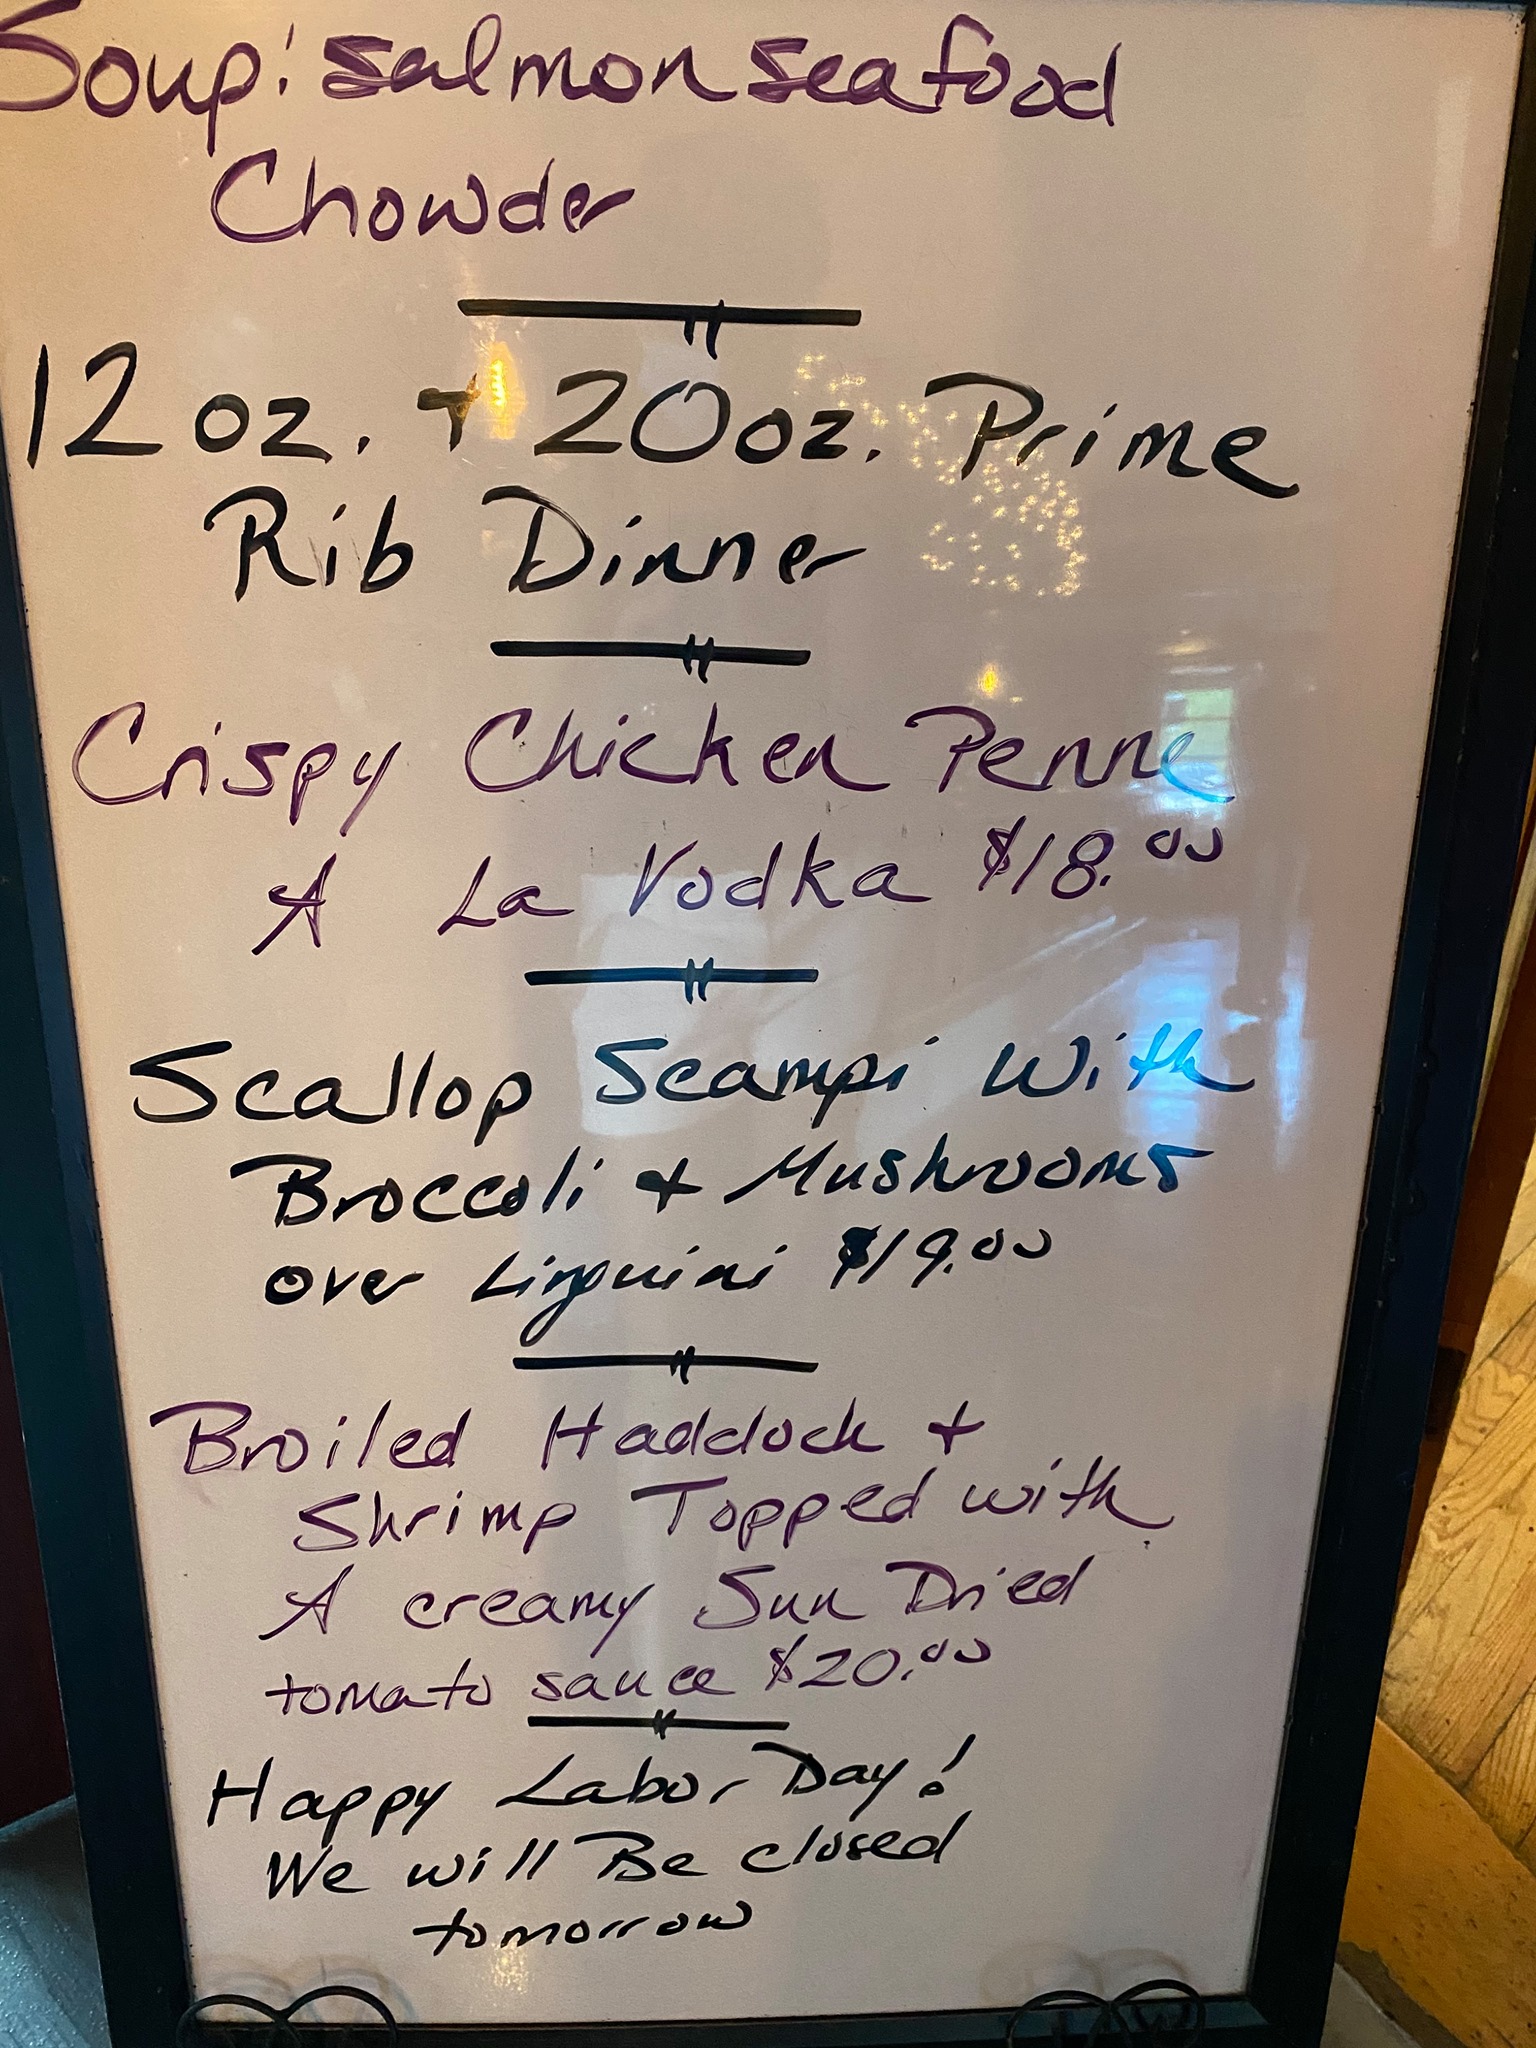 Soup: salmon seafood
Chowder
12 oz. + 20 oz. Prime
Rib Dinner
Crispy Chicken Penne
A La Vodka $18.00
Scallop Scampi With
Broccoli + Mushrooms
over Linguini $19.00
Broiled Haddock +
Shrimp Topped with
A creamy Sun Dried
tomato sauce $20.00
Happy Labor Day!
We will Be closed
tomorrow